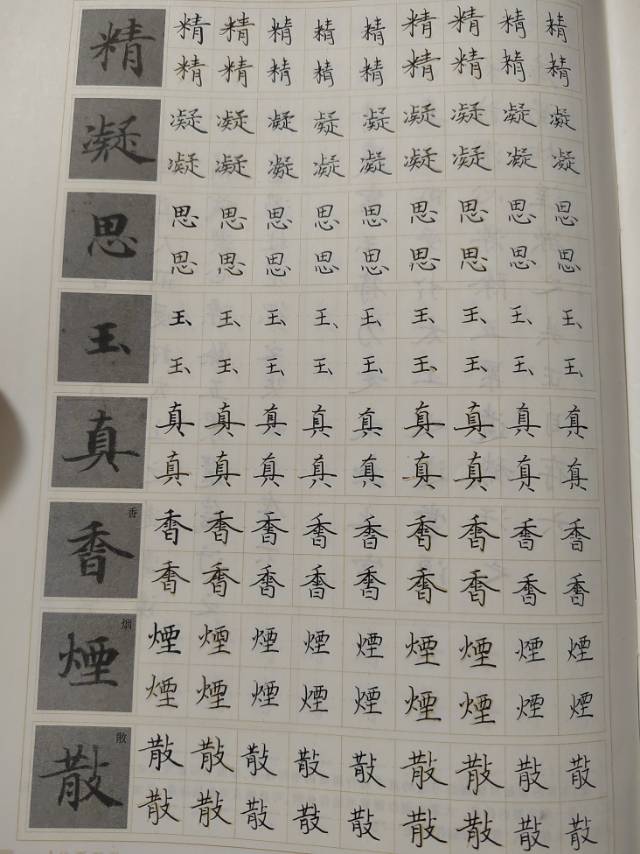 精
精精精精精精精精精
精精精精精精精精精
凝
凝凝凝凝凝凝凝凝凝
凝凝凝凝凝凝凝凝凝
思
思思思思思思思思思
思思思思思思思思思
玉
玉玉玉玉玉玉玉玉玉
玉玉玉玉玉玉玉玉玉
真
真真真真真真真真真
真真真真真真真真真
香
香
香香香香香香香香香
香香香香香香香香香
烟
煙
煙煙煙煙煙煙煙煙煙
煙煙煙煙煙煙煙煙煙
散
散
散散散散散散散散散
散散散散散散散散散